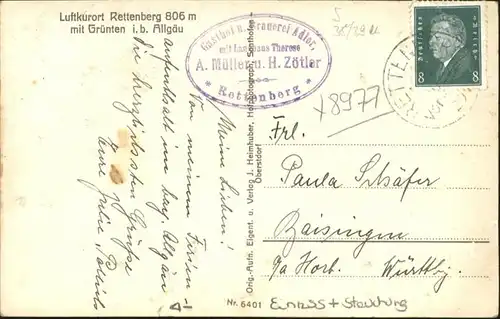 Luftkurort Rettenberg 806 m
mit Grünten i. b. Allgäu
Gasthof u. Brauerei Adler,
mit Landhaus Therese
A. Müller u. H. Zötler
Rettenberg
Meine Lieben!
Von meinem Ferien-
aufenthalt im bay. Allgäu
die herzlichsten Grüße
Eure
Orig.-Aufn. Eigent. u. Verlag J. Heimhuber, Hofphotograph, Sonthofen
Oberstdorf
Nr. 6401
Deutsches Reich
8 8
x8977
Frl.
Paula Schäfer
Baisingen
O/a Horb. Württbg.
Einriss + Stauchung